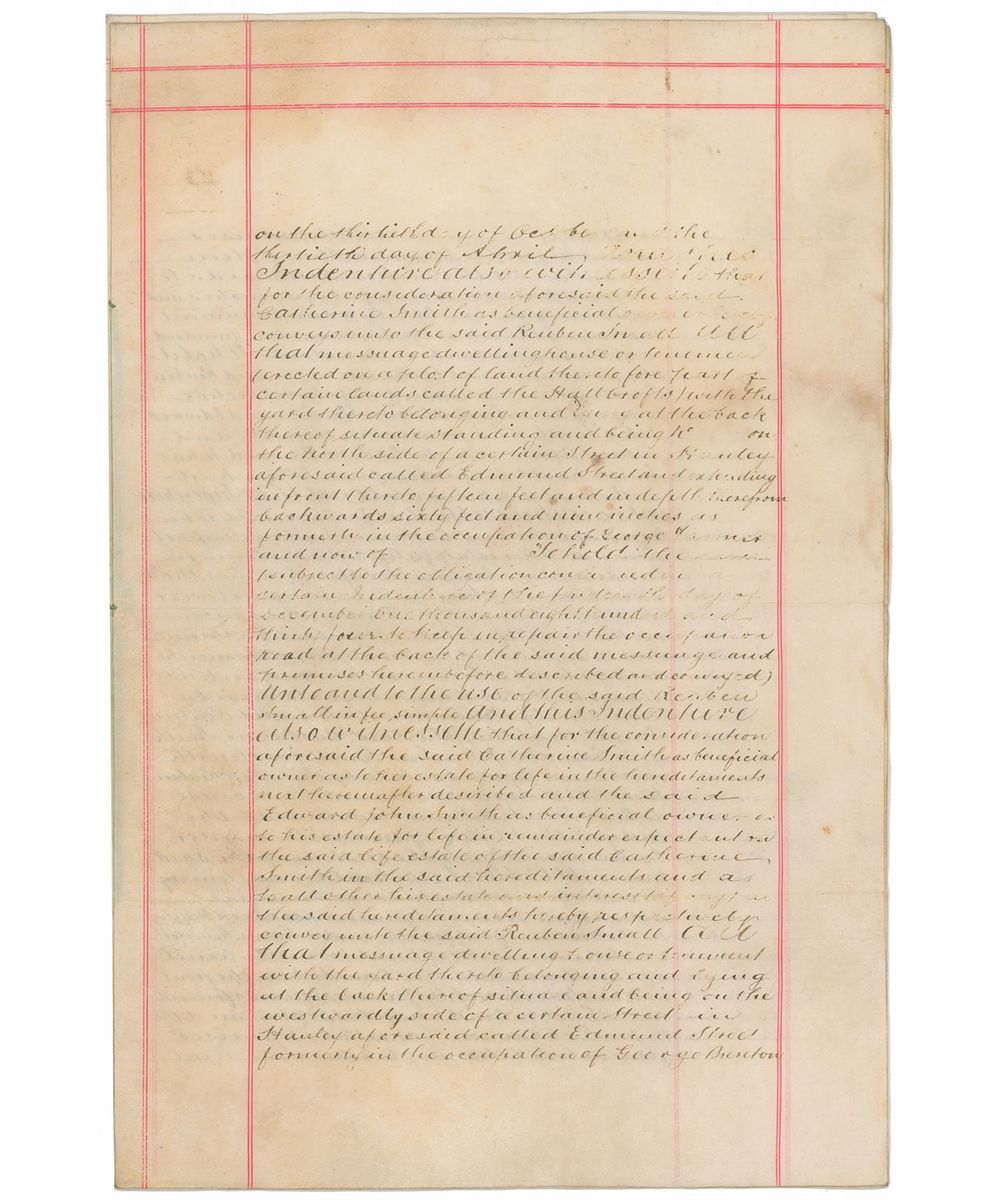 on the thirtieth day of October and the
thirtieth day of April
Indenture also witnesseth that
for the consideration aforesaid the said
Catherine Smith as beneficial
conveys unto the said Reuben Small All
that messuage dwellinghouse or teneme
(erected on a plot of land theretofore part
certain lands called the Hall Crofts) with the
yard thereto belonging and lying at the back
thereof situate standing and being No on
the North side of a certain Street in Hanley
aforesaid called Edmund Street and extending
in front thereto fifteen feet and in depth therefrom
backwards sixty feet and nine inches as
formerly in the occupation of George
and now of To hold the
(subject to the obligation contained in a
certain Indenture of the day of
December One thousand eight hundred and
thirty four to keep in repair the occupation
road at the back of the said messuage and
premises hereinbefore described and conveyed)
Unto and to the use of the said Reuben
Small in fee simple And this Indenture
also witnesseth that for the consideration
aforesaid the said Catherine Smith as beneficial
owner as to her estate for life in the hereditaments
next hereinafter described and the said
Edward John Smith as beneficial owner as
to his estate for life in remainder expectant on
the said life estate of the said Catherine
Smith in the said hereditaments and as
to all other his estate and interest (if any) in
the said hereditaments hereby respectively
convey unto the said Reuben Small All
that messuage dwelling house or tenement
with the yard thereto belonging and lying
at the back thereof situate and being on the
westwardly side of a certain Street in
Hanley aforesaid called Edmund Street
formerly in the occupation of George Brereton